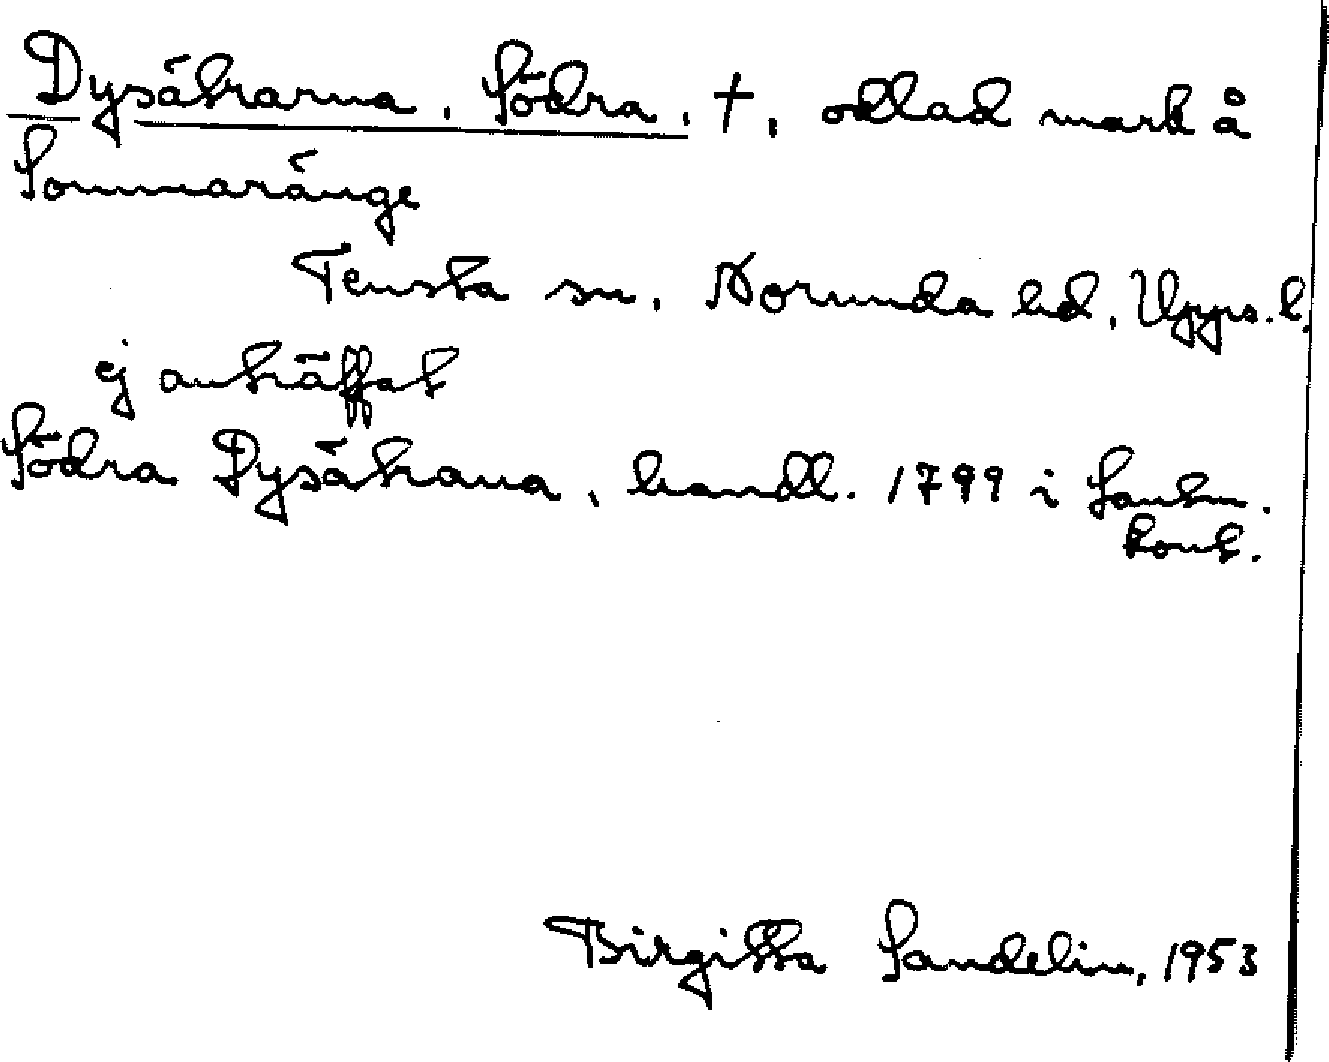 Dysåkrarna, Södra, †, odlad mark å
Sommaränge
Tensta sn, Norunda hd, Upps. l.
ej anträffat
Södra Dysåkrana, handl. 1799 i Lantm.
kont.
Birgitta Sandelin, 1953